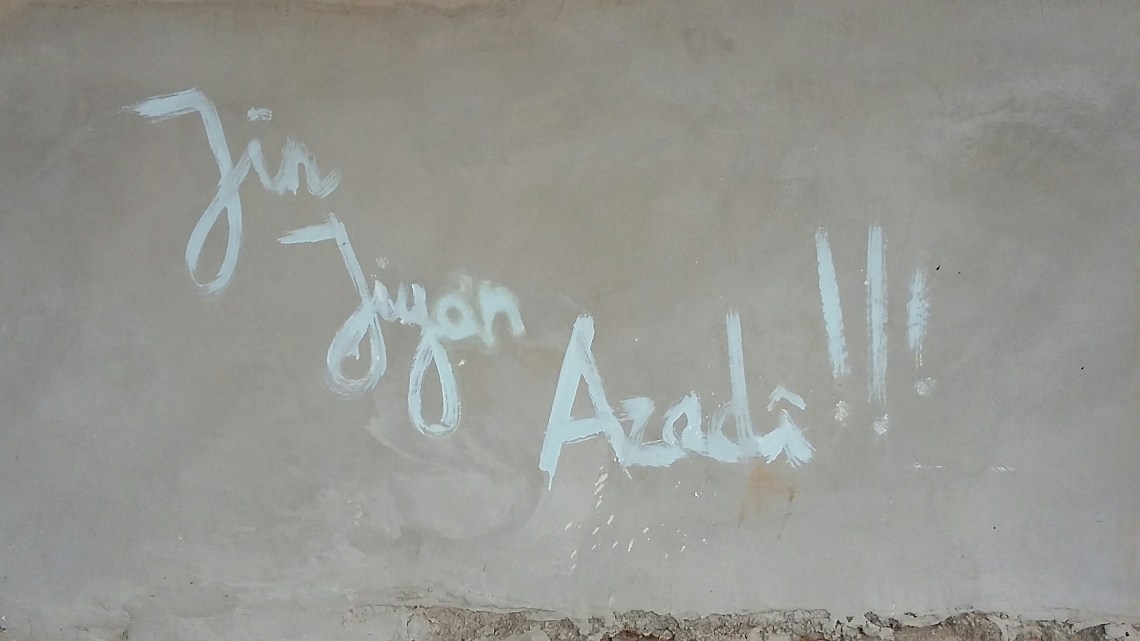 Jin
Jiyan
Azadî !!!